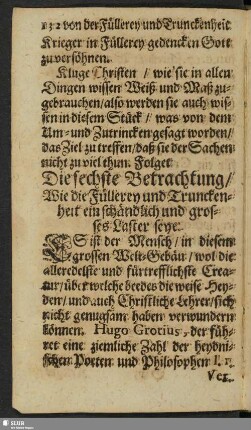 132 von der Füllerey und Trunckenheit
Krieger in Füllerey gedencken Gott
zu versöhnen.
Kluge Christen / wie sie in allen
Dingen wissen Weiß und Maß zu-
gebrauchen / also werden sie auch wis-
sen in diesem Stück / was von dem
Um- und Zutrincken gesagt worden /
das Ziel zu treffen / daß sie der Sachen
nicht zu viel thun. Folget
Die sechste Betrachtung /
Wie die Füllerey und Truncken-
heit ein schändlich und gros-
ses Laster seye.
ES ist der Mensch / in diesem
grossen Welt-Gebäu / wol die
alleredelste und fürtrefflichste Crea-
tur / über welche beedes die weise Hey-
den / und auch Christliche Lehrer / sich
nicht genugsam haben verwundern
können. Hugo Grotius, der füh-
ret eine ziemliche Zahl der heydni-
schen Poeten und Philosophen
Ver.
SLUB